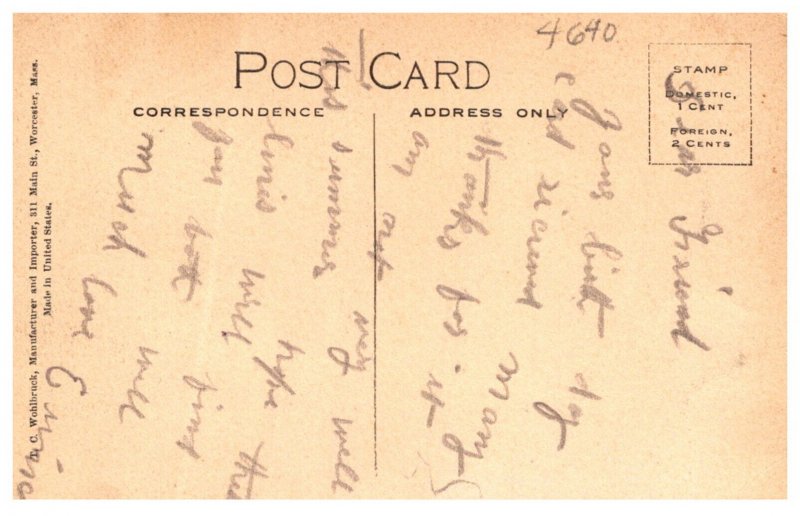 4640
POST CARD
CORRESPONDENCE
ADDRESS ONLY
STAMP
DOMESTIC, 1 CENT
FOREIGN, 2 CENTS
T. C. Wohlbruck, Manufacturer and Importer, 311 Main St., Worcester, Mass.
Made in United States.
Dear Friend
Your birth day
card received many
thanks for it
am out
this summer very well
hope this
will find
you well
Much love